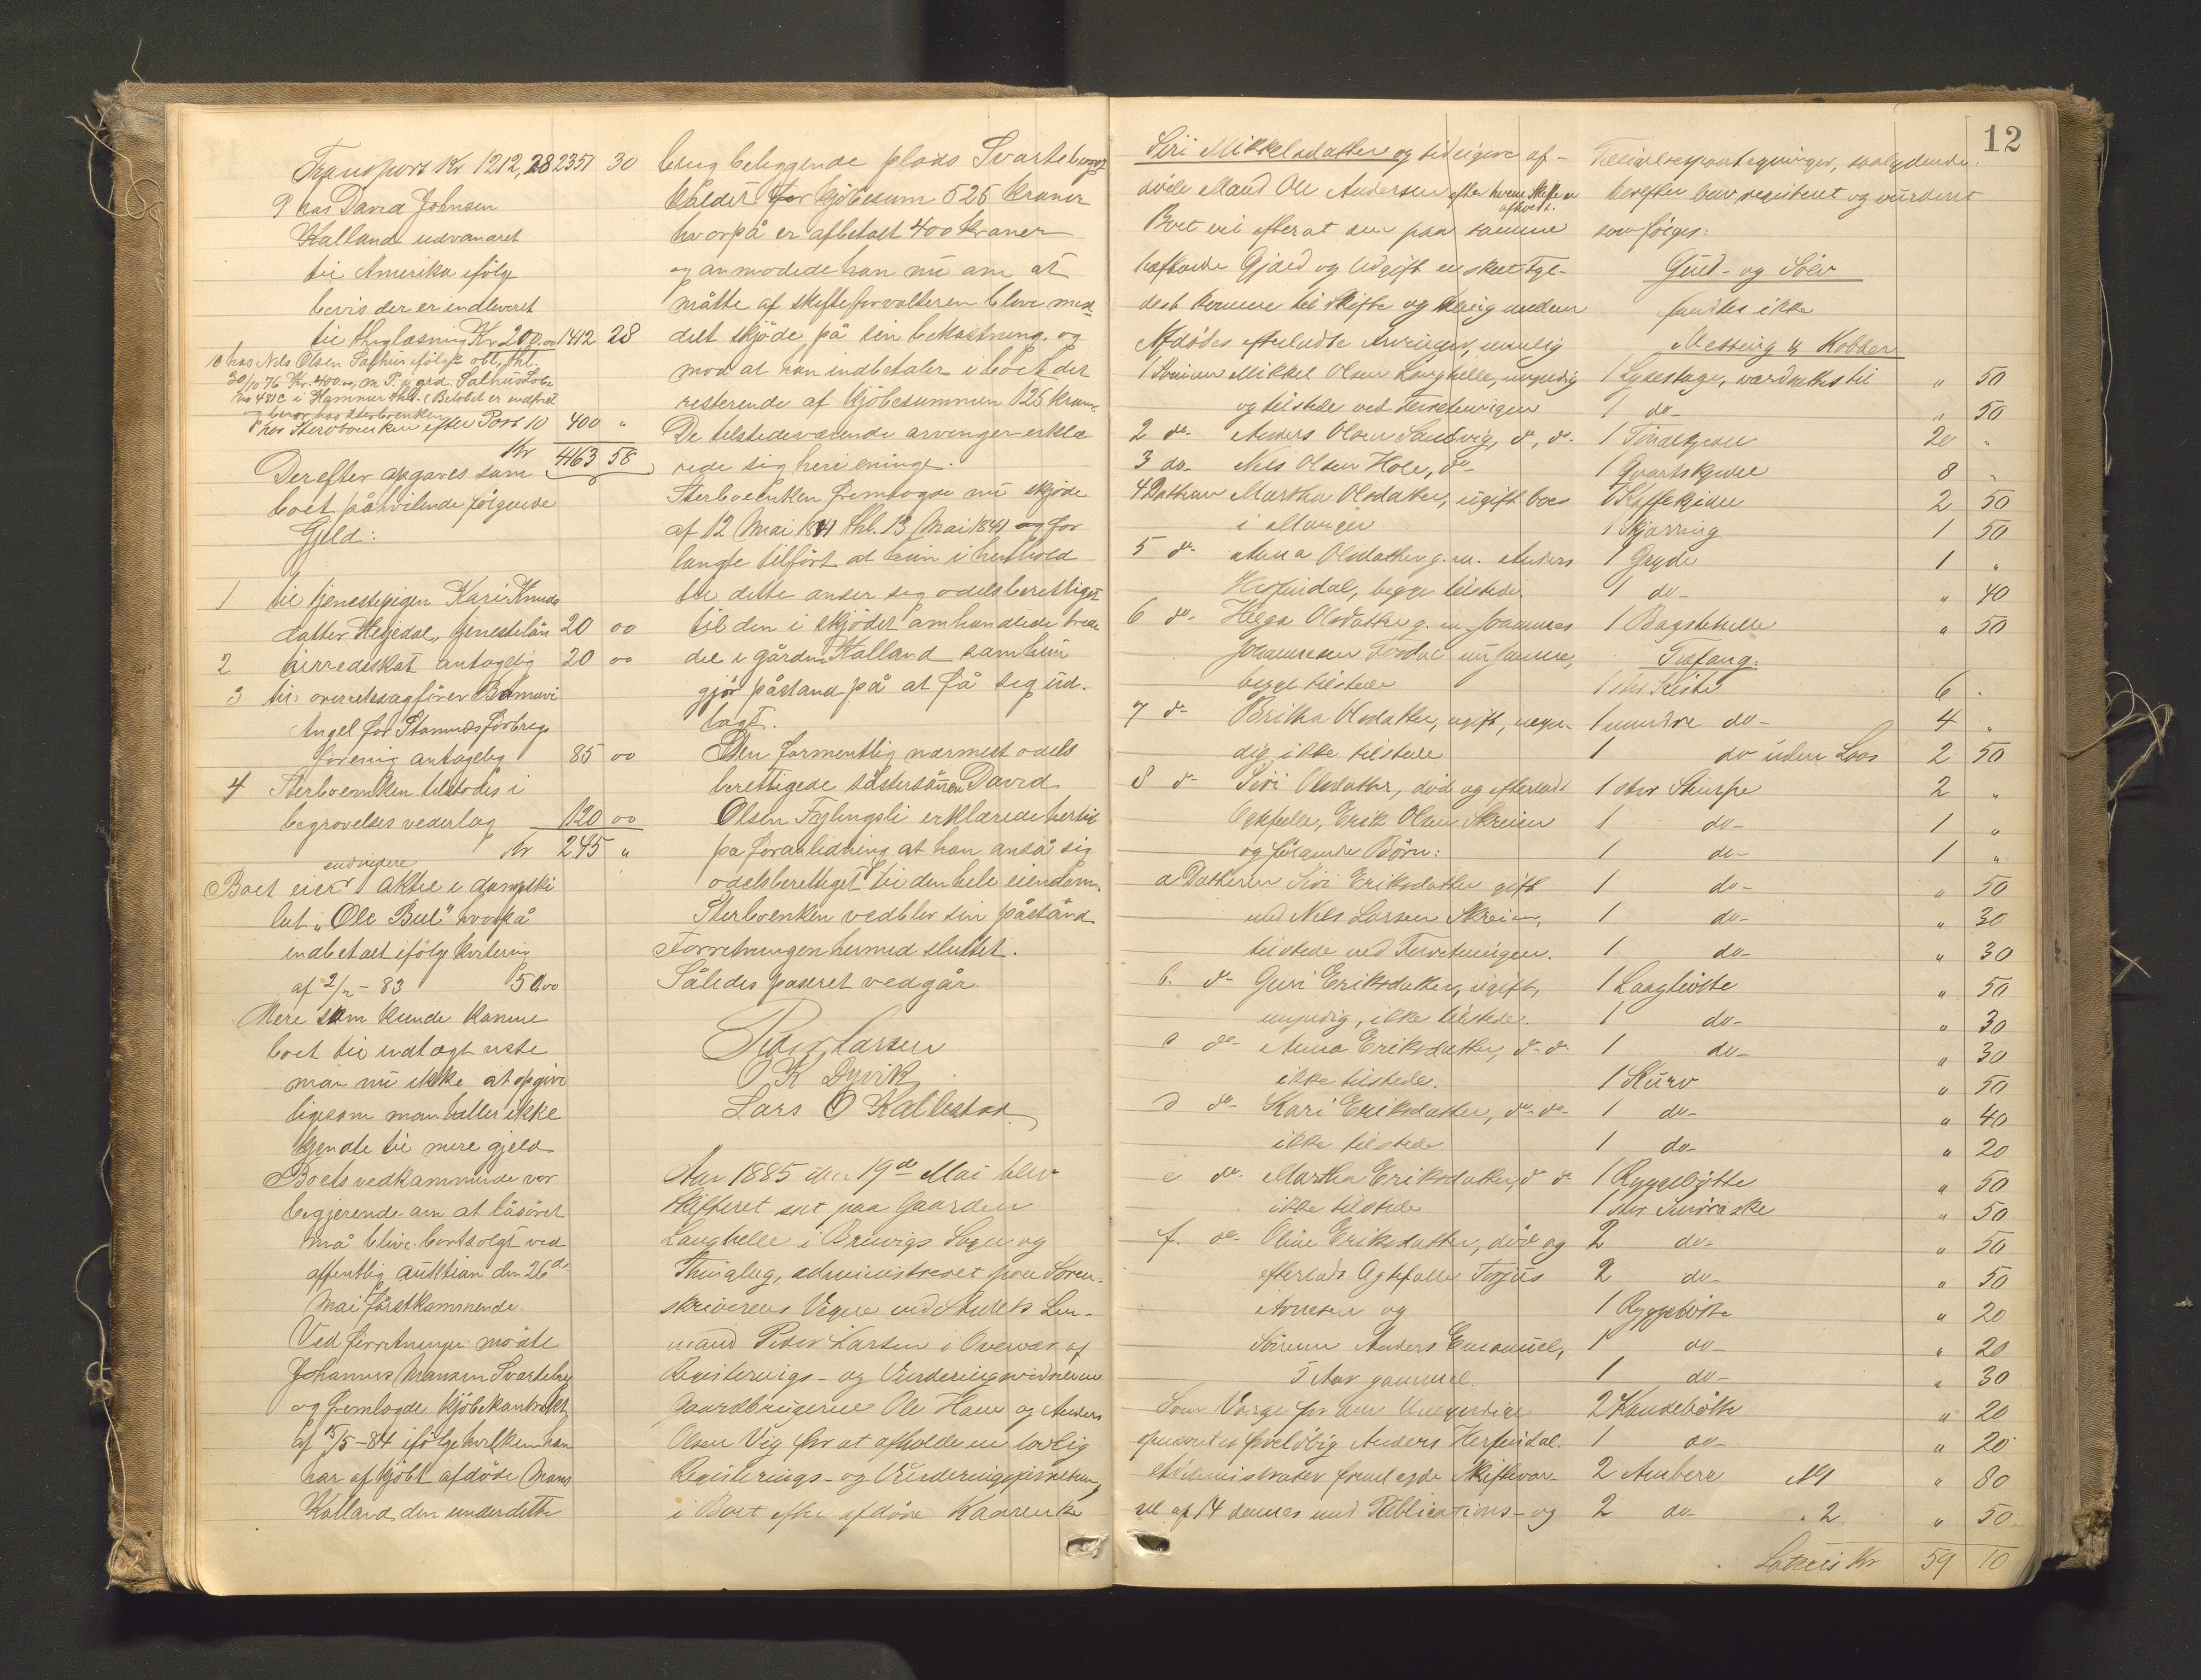 Transport Kr 1212,28 2351 30
9 hos David Johnsen
Kalland udvandret
til Amerika ifölge
bevis der er indleveret
til thinglæsning Kr 200.00 1412 28
10 hos Nils Olsen Salhus ifölge obl, thl.
30/10 76 Kr. 400.00, m. P. i grd. Salhus Lobe
No 481C i Hammer thl. (Belöbet er indfriet
og beror hos sterboenken
hos Sterboenken efter Post 10 400 "
Kr 4163 58
Derefter opgaves som
boet påhvilende fölgende
Gjeld:
1 til tjenestepigen Kari Knuds
datter Hejedal, tjenestelön 20 00
2 herredsskat antagelig 20 00
3 til overretssagförer
Angel for Stamnæs forbrugs
forening antagelig 85 00
4 Sterboenken tilstodes i
begravelses vederlag 120 00
Kr 245 "
endvidere
Boet eier 1 aktie i dampski
bet „Ole Bul" hvorpå
indbetalt ifölge kvitering
af 2/2 - 83 50.00
Mere som kunde komme
boet til indtægt viste
man nu ikke at opgive
ligesom man heller ikke
kjendte til mere gjeld
Boets vedkommende var
begjerende om at lösöret
må blive bortsolgt ved
offentlig auktion den 26de
Mai förstkommende.
Ved forretningen mödte
Johannes Mansen Svarteberg
og fremlagde kjöbekontrakt
af 15/5 - 84 ifölge hvilken han
har afkjöbt afdöde Mons
Kalland den under dette
brug beliggende plads Svarteberg
kaldet for kjöbesum 525 kroner
hvorpå er afbetalt 400 Kroner
og anmodede han nu om at
måtte af skifteforvalteren blive med
delt skjöde på sin bekostning og
mod at han indbetaler i boet det
resterende af kjöbesummen 125 kroner.
De tilstedeværende arvinger erklæ
rede sig heri eninge.
Sterboenken fremlagde nu skjöde
af 12 Mai 1841 thl. 13 Mai 1841 og for
langte tilfört at hun i henhold
til dette anser sig odelsberettiget
til den i skjödet omhandlede
del i gården Kalland som hun
gjör påstand på at få sig ud-
lagt.
Den formentlig nærmest odels
berettigede söstersönnen David
Olsen Fyllingsli erklærede hertil
på foranledning at han anså sig
odelsberettiget til den hele eiendom.
Sterboenken vedblev sin påstand
Forretningen hermed sluttet.
Således passeret vedgår
Peder Larsen
O K Dyvik
Lars O Kallestad
Aar 1885 den 19de Mai blev
Skifteret sat paa Gaarden
Langhelle i Bruvigs Sogn og
Thinglag, administreret paa Soren-
skriverens Vegne ved Stedets Len-
mand Peder Larsen i Overvær af
Registerings- og Vurderingsvidnerne
Gaardbrugerne Ole Hane og Anders
Olsen Vig for at afholde en lovlig
Registerings- og Vurderingsforretning
i Boet efter afdöde Kaarenke
12
Siri Mikkelsdatter og tidligere af-
döde Mand Ole Andersen efter hvem Skifte er
afholdt.
Boet vil efter at den paa samme
hæftende Gjæld og Udgift er skeet Fyl-
dest komme til Skifte og Deling mellem
Afdödes efterladte Arvinger, navnlig
1 Sönnen Mikkel Olsen Langhelle, myndig
og tilstede ved Forretningen
2 do. Anders Olsen Sandvig, do, do.
3 do. Nils Olsen Hole, do.
4 Datteren Martha Olsdatter, ugift, boes
i Manger
5 do. Anna Olsdatter g. m. Anders
Herfindal, begge tilstede.
6 do. Helga Olsdatter g. m. Joannes
Johannesen
begge tilstede
7 do Britha Olsdatter, ugift, myn-
dig, ikke tilstede
8 do Siri Olsdatter, död og efterladt
Ægtefælle, Erik Olsen Skreien
og fölgende Börn:
a Datteren Siri Eriksdatter gift
med Nils Larsen Skreien,
tilstede ved Forretningen.
b. do Guri Eriksdatter, ugift,
umyndig, ikke tilstede.
c do Anna Eriksdatter, do do
ikke tilstede.
d do. Kari Eriksdatter, do. do.
ikke tilstede.
e do. Martha Eriksdatter, do do
ikke tilstede
f. do. Oline Eriksdatter, död og
efterladt Ægtefælle Torjus
Arnesen og
Sönnen Anders Emanuel,
5 Aar gammel.
Som Værge for den Umyndige
opnævnt foreløbig Anders Herfindal.
Administrator fremlagde Skiftevar-
sel af 14 dennes med Publications- og
Tilleiarbespaategninger, saalydende:
herefter blev registeret og vurderet
som fölger:
Guld- og Sölv
fandtes ikke
Messing & Kobber
1 Lysestage, værdsættes til " 50
1 do " 50
1 20 "
1 Qvartskjedel 8 "
1 Kaffekjedel 2 50
1 1 50
1 Gryde 1 "
1 do " 40
1 Bagstehelle " 50
Træfang:
1 stor Kiste 6 "
1 mindre do 4 "
1 do uden Laas 2 50
1 stor Skrespe 2 "
1 do 1 "
1 do 1 "
1 do " 50
1 do " 30
1 do " 30
1 Laagbötte " 50
1 do " 30
1 do " 30
1 Kurv " 50
1 do " 40
1 do " 20
1 Ryggebötte " 50
1 stor Smöræske " 50
2 do " 50
2 do " 50
1 Ryggebötte " 20
1 do " 20
1 do " 30
2 Kandebötte " 20
1 do " 20
2 Ambere No 1 " 80
2 do " 2 " 50
Lateris Kr 59 10